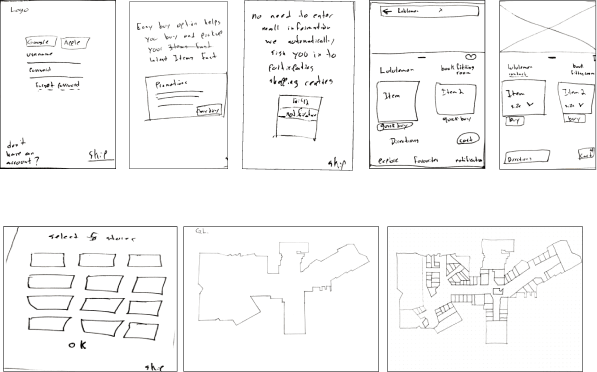 Logo
Google Apple
username
password
forgot password
don't
have an
account?
skip
Easy buy option helps
you buy and pickup
your
want Items fast
Promotions
Easy buy
no need to enter
email information
we automatically
sign you in to
participating
shopping centres
skip
← Lululemon >
Lululemon
book fitting
room
Item
Item 2
quick buy
quick buy
Directions
cart
explore Favourites notification
Lululemon
book
fitting room
Item
Item 2
size
size
Buy
buy
Directions
Cart
select 5 stores
OK
skip
GL.